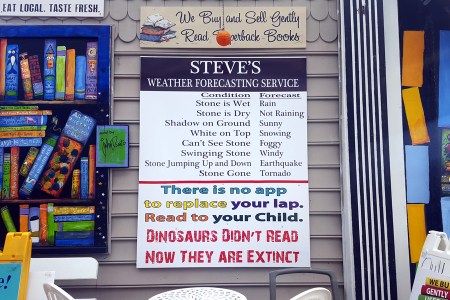 EAT LOCAL. TASTE FRESH.
We Buy and Sell Gently
Read Paperback Books
STEVE'S
WEATHER FORECASTING SERVICE
Condition Forecast
Stone is Wet Rain
Stone is Dry Not Raining
Shadow on Ground Sunny
White on Top Snowing
Can't See Stone Foggy
Swinging Stone Windy
Stone Jumping Up and Down Earthquake
Stone Gone Tornado
There is no app
to replace your lap.
Read to your Child.
DINOSAURS DIDN'T READ
NOW THEY ARE EXTINCT
WE
BUY
GENTLY